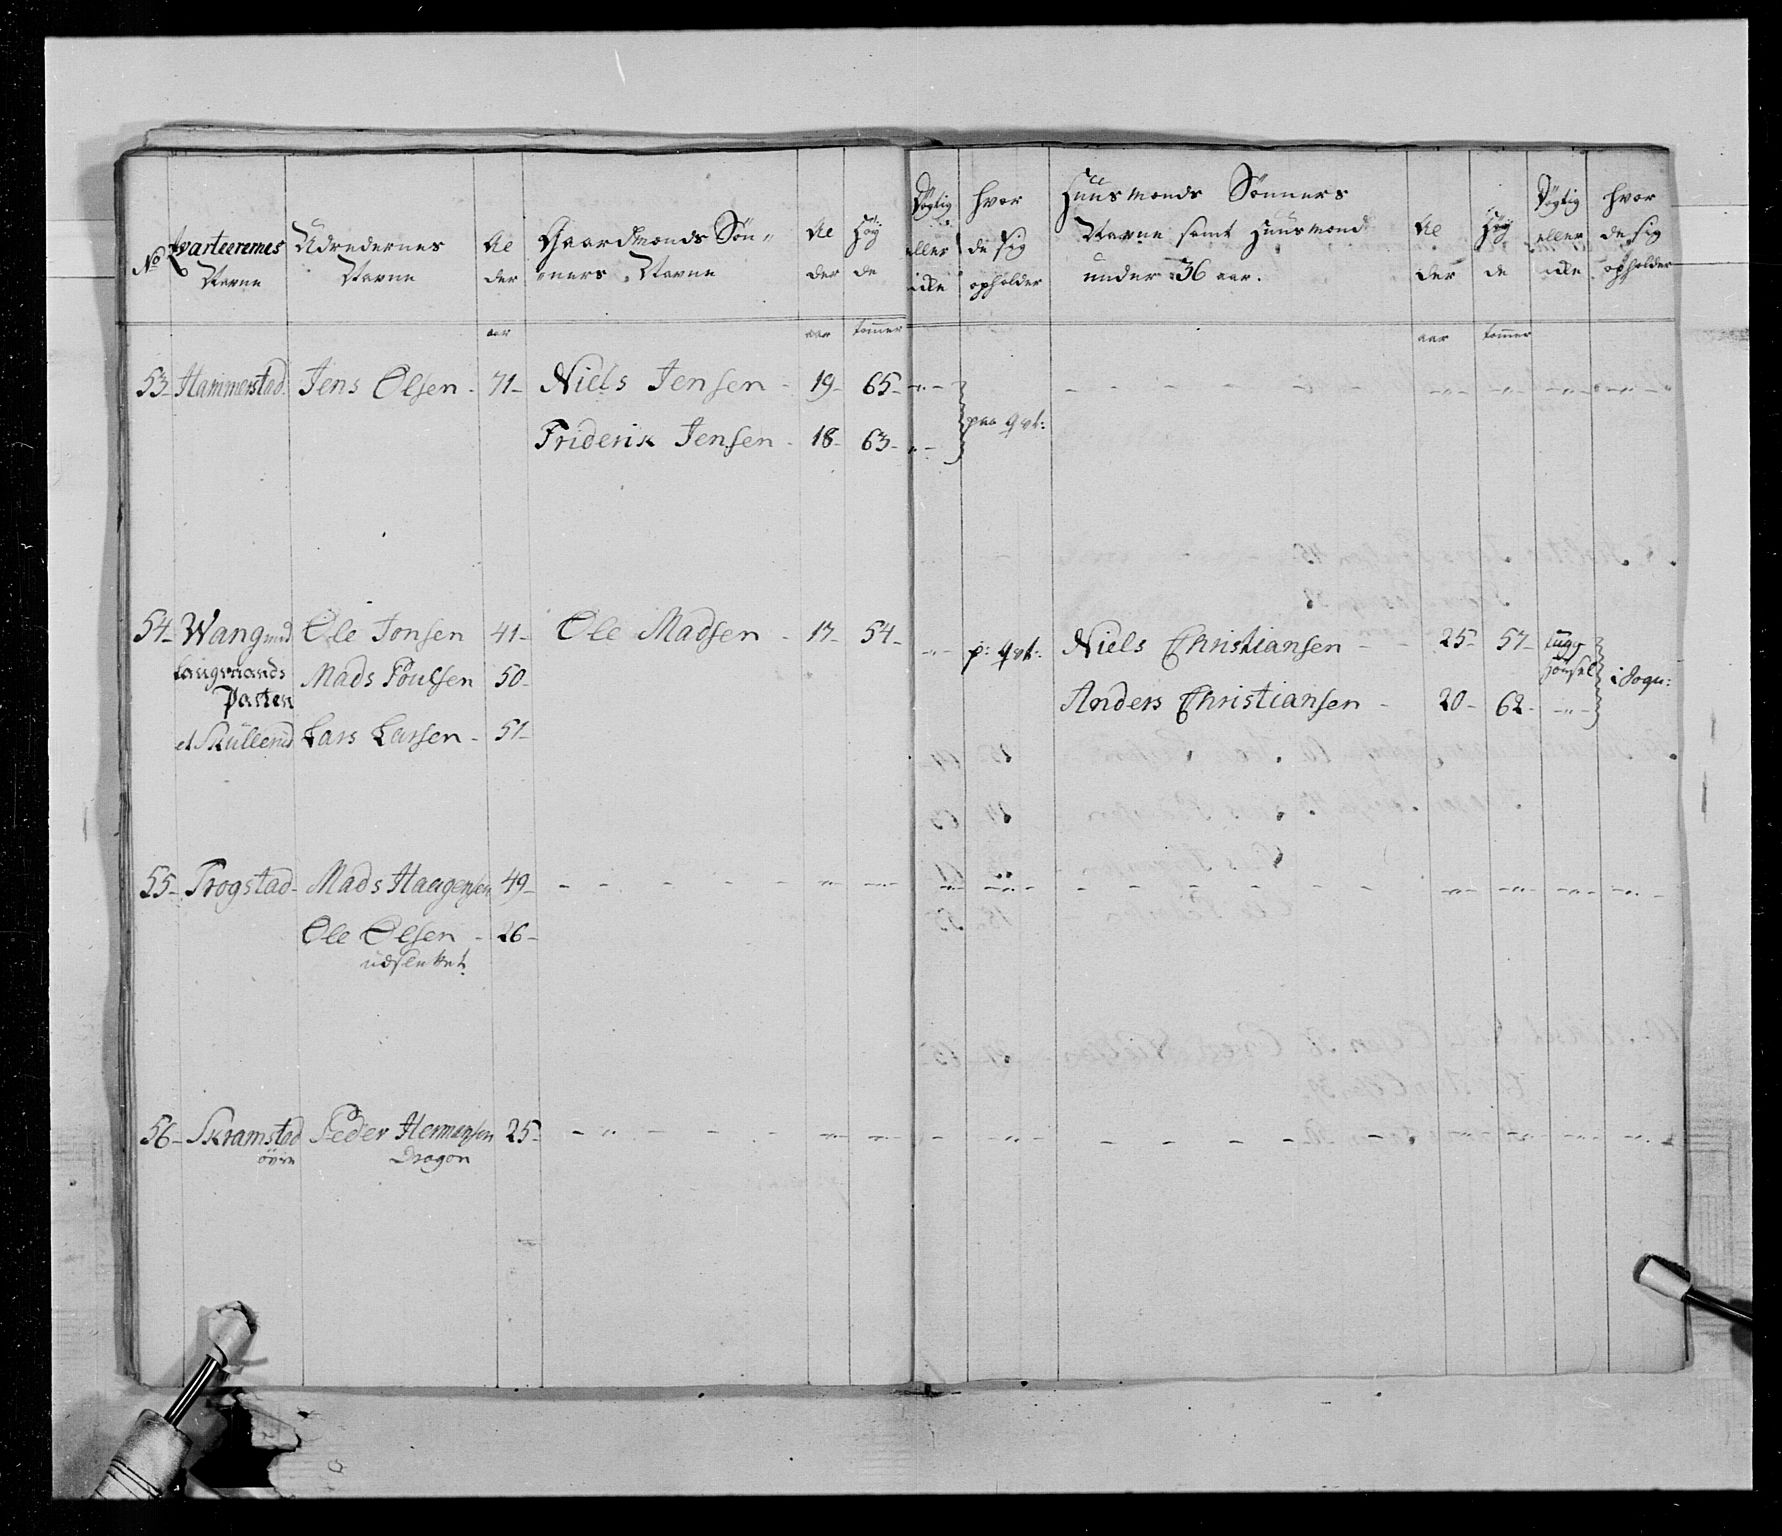 No Qvarteerernes Navne | Udredernes Navne | Alder | Gaardmands Sønners Navne | Alder | Høyde | Døgtig eller ikke | hvor de sig opholder | Huusmænds Sønners Navne samt Huusmænd under 36 aar. | Alder | Høyde | Døgtig eller ikke | hvor de sig opholder
aar | aar | tommer | aar | tommer
53 Hammerstad Jens Olsen 71 Niels Jensen 19 65 paa qvt:
Friderik Jensen 18 63
54 Wang med Ole Jonsen 41 Ole Madsen 17 54 p: qvt: Niels Christiansen 25 57 i Sogn:
Mads Poulsen 50 Anders Christiansen 20 62
Parten
et Skullerud Lars Larsen 51
55 Trogstad Mads Haagensen 49
Ole Olsen 26
udslettet
56 Skramstad Peder Hermansen 25
øvre Dragon